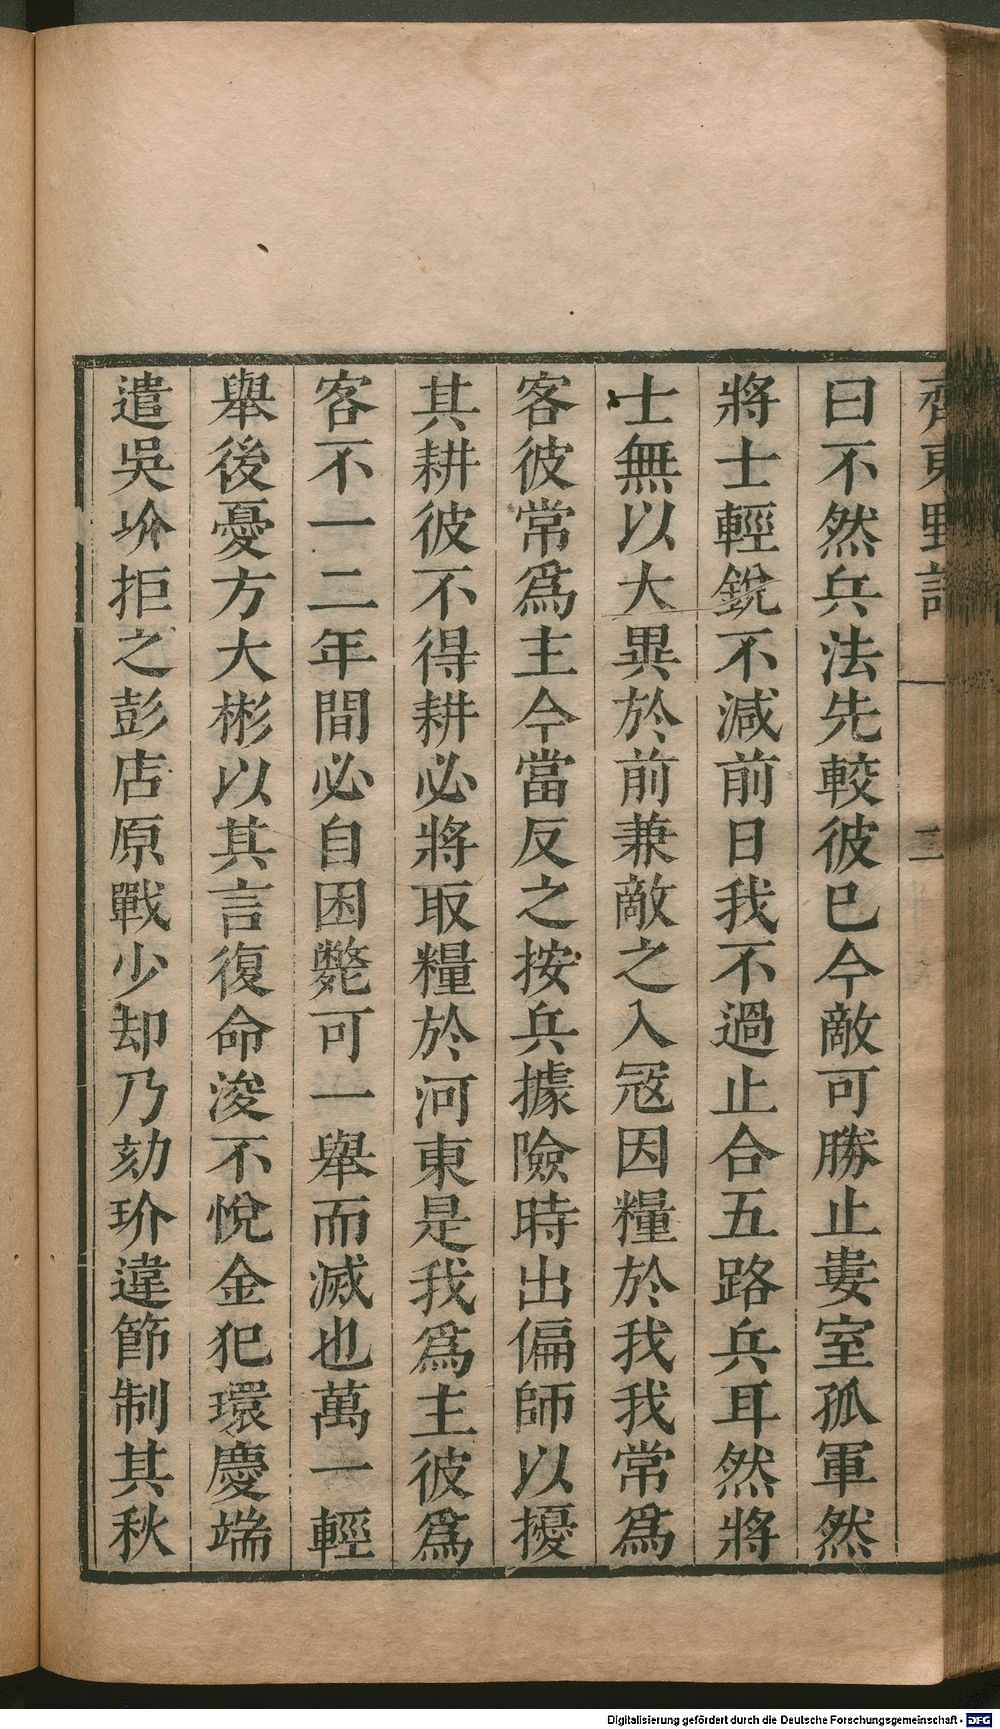 齊東野語 一 二
曰不然兵法先較彼已今敵可勝止婁室孤軍然
將士輕銳不減前日我不過止合五路兵耳然將
士無以大異於前兼敵之入冦因糧於我我常爲
客彼常爲主今當反之按兵據險時出偏師以擾
其耕彼不得耕必將取糧於河東是我爲主彼爲
客不一二年間必自困斃可一舉而滅也萬一輕
舉後憂方大彬以其言復命浚不悅金犯環慶端
遣吳玠拒之彭店原戰少却乃劾玠違節制其秋
Digitalisierung gefördert durch die Deutsche Forschungsgemeinschaft - DFG